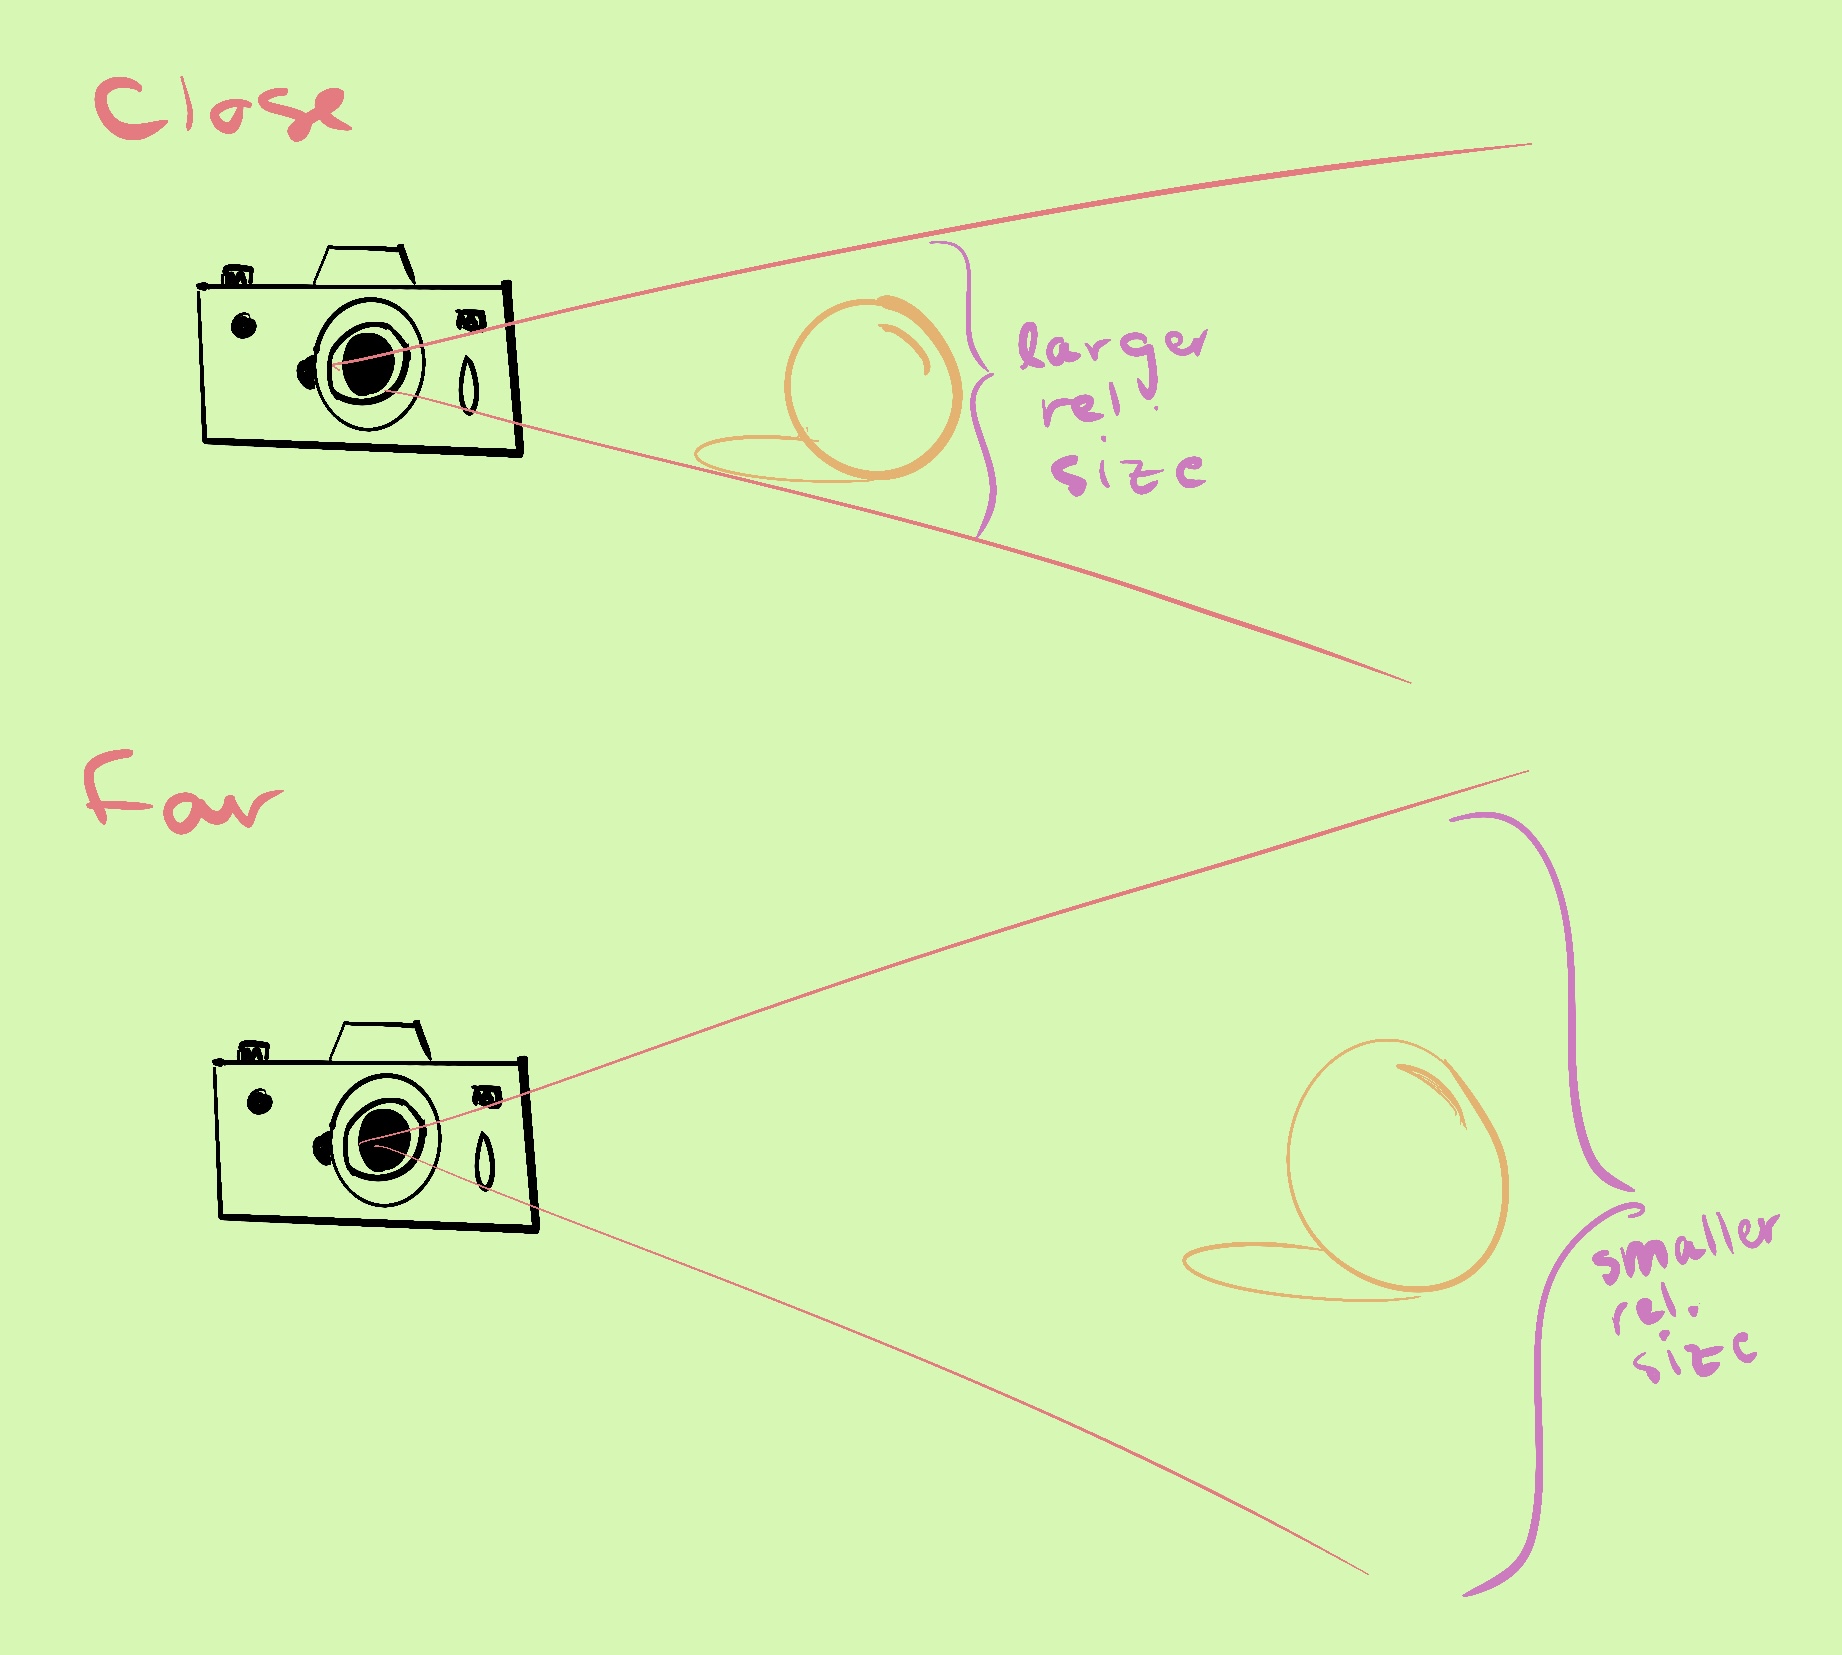 Close
larger
rel.
size
Far
smaller
rel.
size